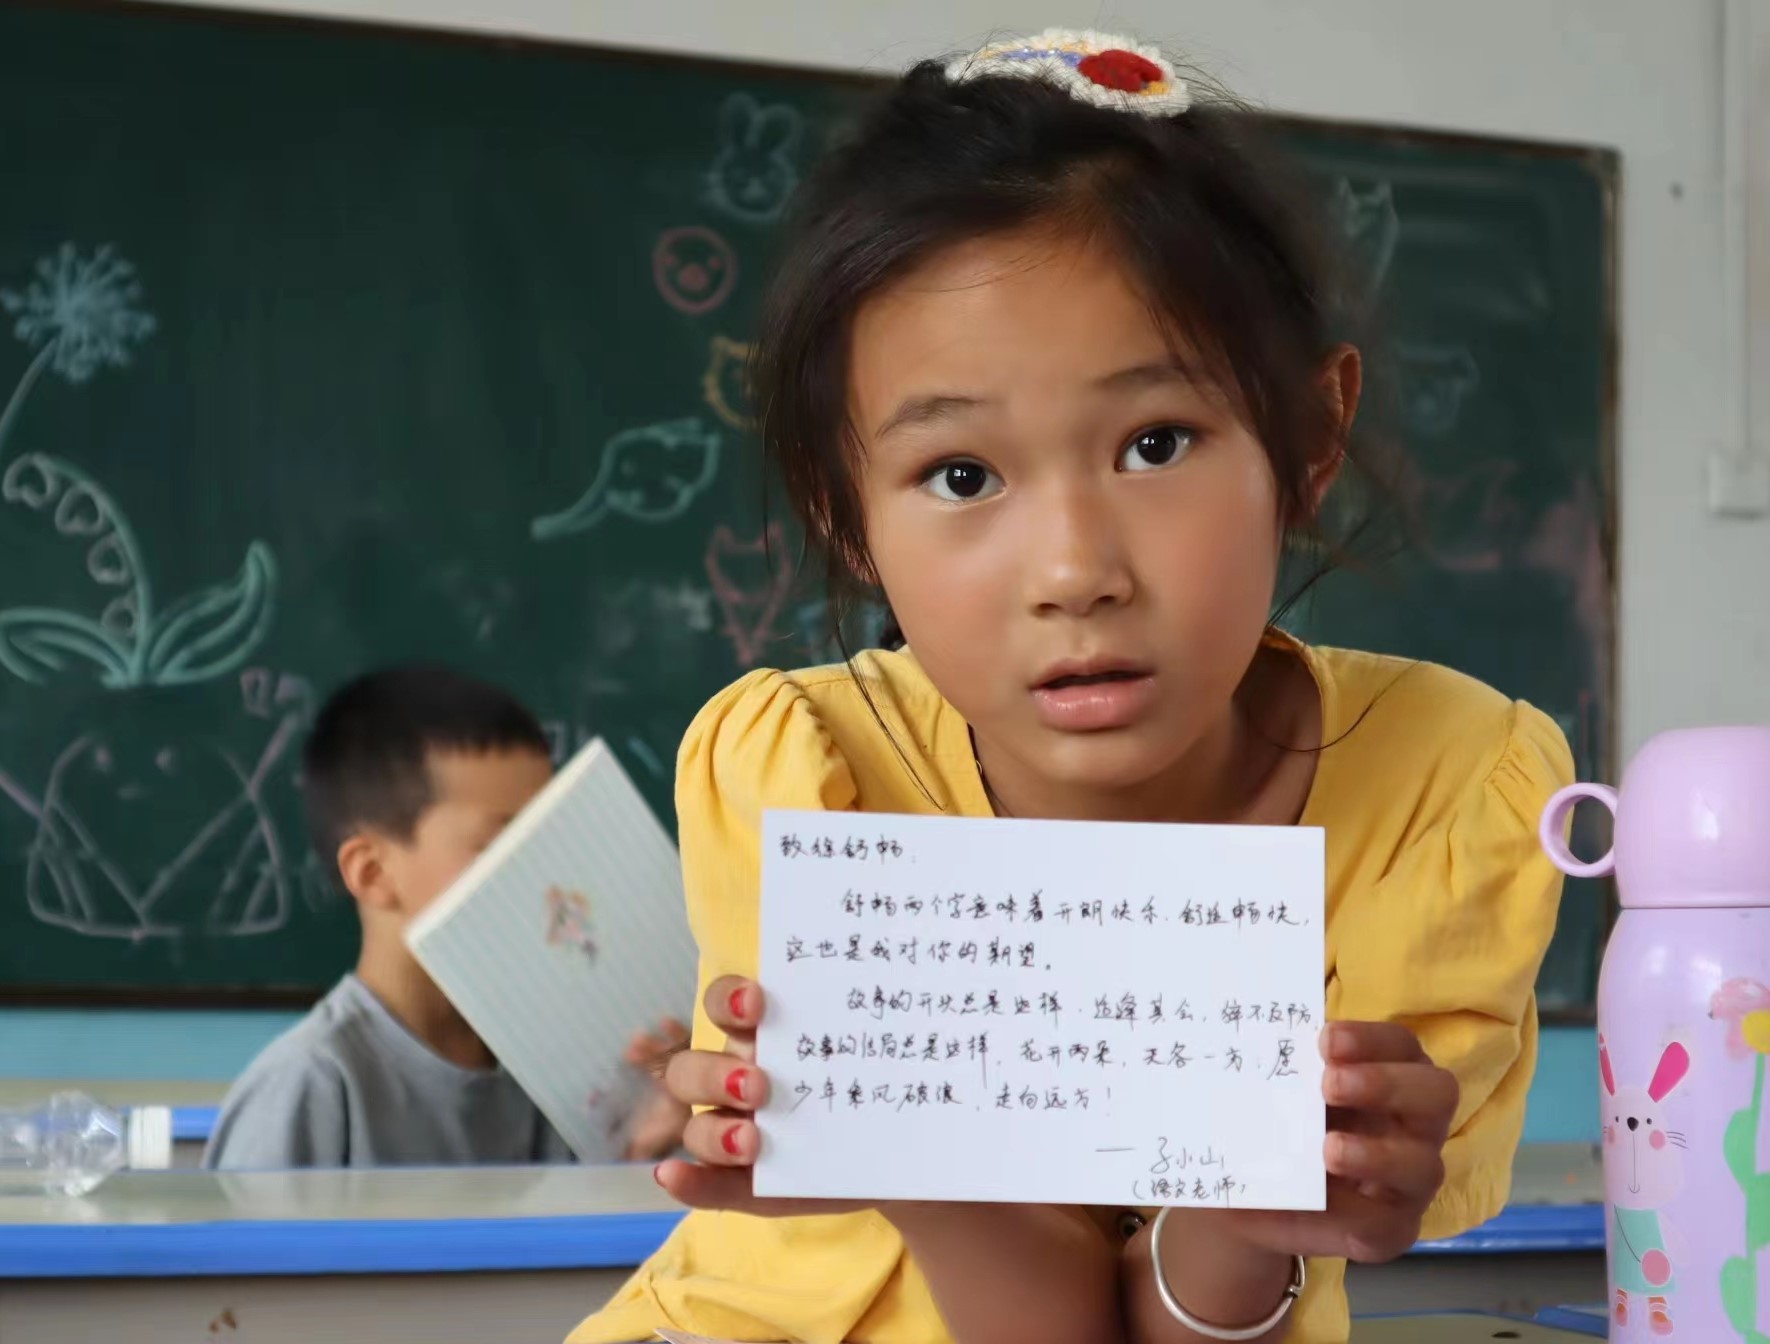 致徐舒畅：
舒畅两个字意味着开朗快乐、舒适畅快，
这也是我对你的期望。
故事的开头总是这样，适逢其会，猝不及防，
故事的结局总是这样，花开两朵，天各一方，愿
少年乘风破浪，走向远方！
—子小山
（语文老师）